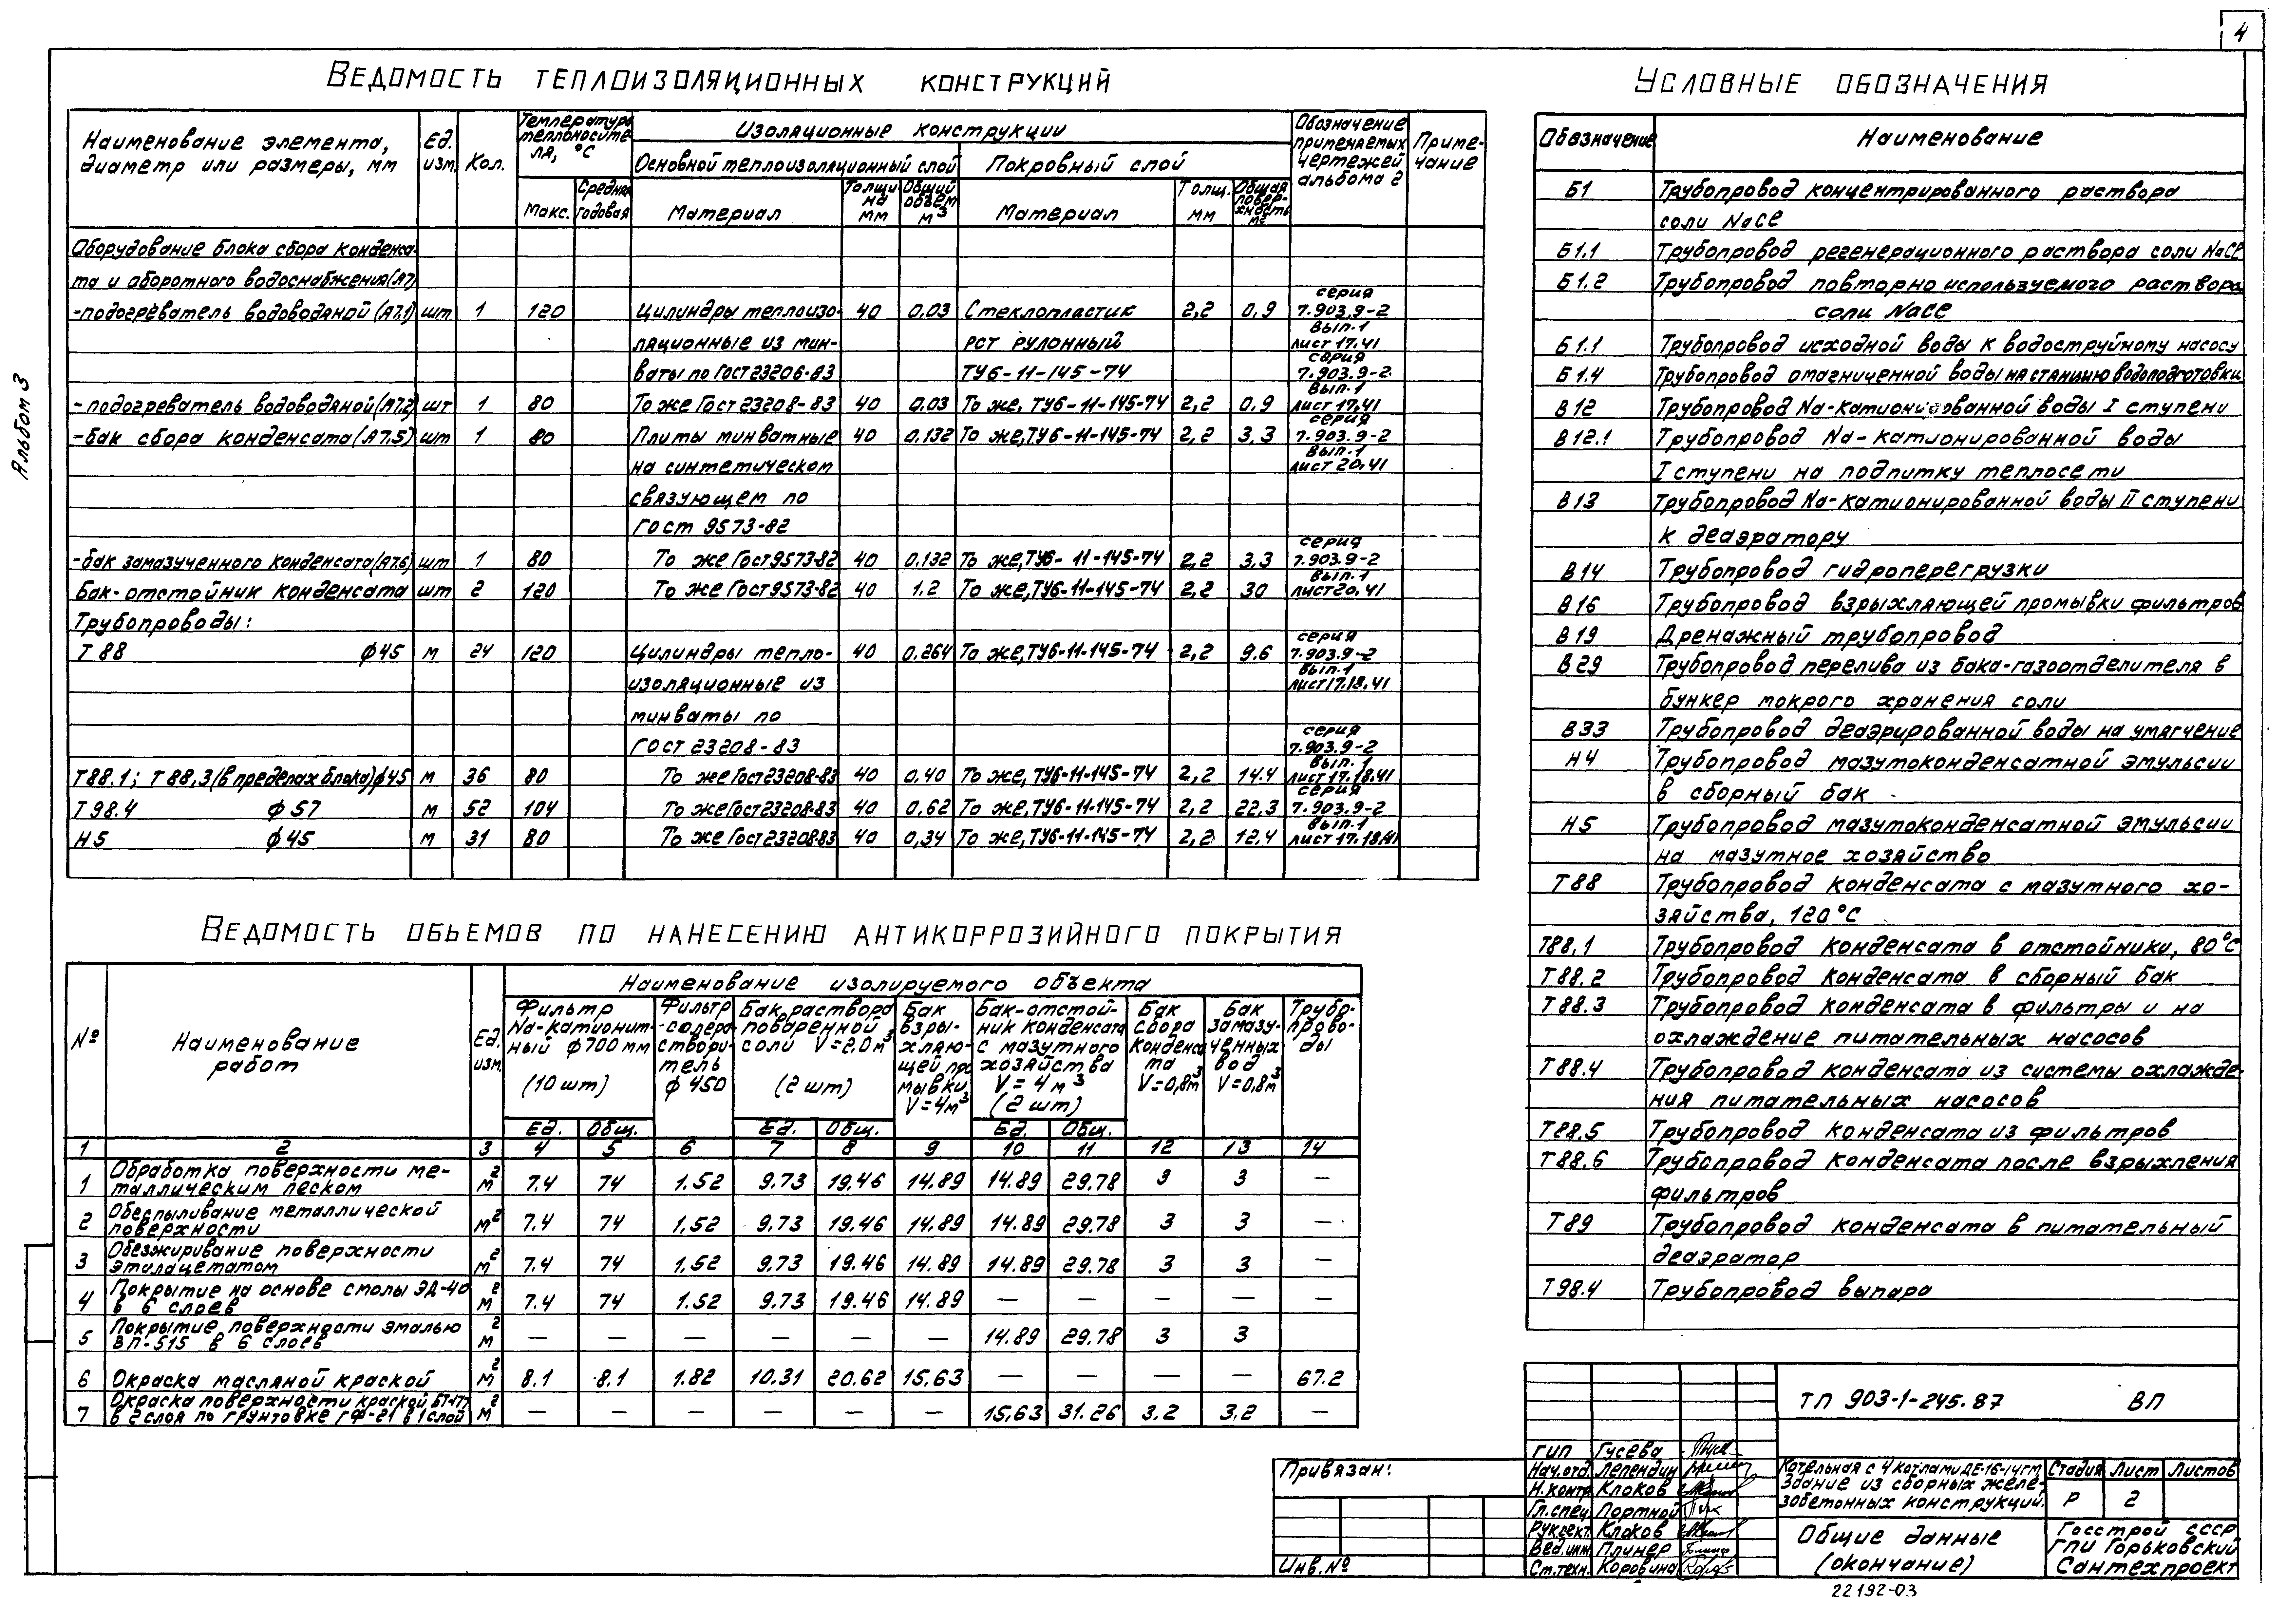 4
Альбом 3
Ведомость теплоизоляционных конструкций
Наименование элемента, диаметр или размеры, мм
Ед. изм.
Кол.
Температура теплоносителя, °С
Макс.
Средняя годовая
Изоляционные конструкции
Основной теплоизоляционный слой
Покровный слой
Материал
Толщина мм
Общий объем м³
Материал
Толщ. мм
Общая поверхность м²
Обозначение применяемых чертежей альбома 2
Примечание
Оборудование блока сбора конденса-
та и оборотного водоснабжения (А7)
-подогреватель водоводяной (А7.1) шт 1 120 Цилиндры теплоизо- 40 0,03 Стеклопластик 2,2 0,9 серия 7.903.9-2
ляционные из мин- рст рулонный вып.1 лист 17.41
ваты по Гост 23206-83 ТУ6-11-145-74 серия 7.903.9-2
-подогреватель водоводяной (А7.2) шт 1 80 То же Гост 23208-83 40 0,03 То же, ТУ6-11-145-74 2,2 0,9 вып.1 лист 17.41
-бак сбора конденсата (А7.5) шт 1 80 Плиты минватные 40 0,132 То же, ТУ6-11-145-74 2,2 3,3 серия 7.903.9-2
на синтетическом вып.1 лист 20.41
связующем по
Гост 9573-82
-бак замазученного конденсата (А7.6) шт 1 80 То же Гост 9573-82 40 0,132 То же, ТУ6-11-145-74 2,2 3,3 серия 7.903.9-2
Бак-отстойник конденсата шт 2 120 То же Гост 9573-82 40 1,2 То же, ТУ6-11-145-74 2,2 30 вып.1 лист 20.41
Трубопроводы:
Т 88 ф45 м 24 120 Цилиндры тепло- 40 0,264 То же, ТУ6-11-145-74 2,2 9.6 серия 7.903.9-2
изоляционные из вып.1 лист 17.18.41
минваты по
Гост 23208-83 серия 7.903.9-2
Т88.1; Т88.3 (в пределах блока) ф45 м 36 80 То же Гост 23208-83 40 0,40 То же, ТУ6-11-145-74 2,2 14.4 вып.1 лист 17.18.41
Т 98.4 ф 57 м 52 104 То же Гост 23208-83 40 0,62 То же, ТУ6-11-145-74 2,2 22,3 серия 7.903.9-2
Н5 ф45 м 31 80 То же Гост 23208-83 40 0,34 То же, ТУ6-11-145-74 2,2 12,4 вып.1 лист 17.18.41
Ведомость обьемов по нанесению антикоррозийного покрытия
№
Наименование работ
Ед. изм.
Наименование изолируемого объекта
Фильтр Na-катионитный ф700 мм (10 шт)
Фильтр-солерастворитель ф 450
Бак раствора поваренной соли V=2.0м³ (2 шт)
Бак взрыхляющей промывки V=4м³
Бак-отстойник конденсата с мазутного хозяйства V=4м³ (2 шт)
Бак сбора конденсата V=0,8м³
Бак замазученных вод V=0,8м³
Трубопроводы
Ед. Общ. Ед. Общ. Ед. Общ.
1 2 3 4 5 6 7 8 9 10 11 12 13 14
1 Обработка поверхности металлическим песком м² 7.4 74 1.52 9.73 19.46 14.89 14.89 29.78 3 3 —
2 Обеспыливание металлической поверхности м² 7.4 74 1.52 9.73 19.46 14.89 14.89 29.78 3 3 —
3 Обезжиривание поверхности этилацетатом м² 7.4 74 1.52 9.73 19.46 14.89 14.89 29.78 3 3 —
4 Покрытие на основе смолы ЭД-40 в 6 слоев м² 7.4 74 1.52 9.73 19.46 14.89 — — — — —
5 Покрытие поверхности эмалью ВЛ-515 в 6 слоев м² — — — — — — 14.89 29.78 3 3
6 Окраска масляной краской м² 8.1 8.1 1.82 10.31 20.62 15.63 — — — — 67.2
7 Окраска поверхности краской БТ-177 в 2 слоя по грунтовке ГФ-21 в 1 слой м² — — — — — — 15,63 31.26 3.2 3,2 —
Условные обозначения
Обозначение Наименование
Б1 Трубопровод концентрированного раствора
соли NaCl
Б1.1 Трубопровод регенерационного раствора соли NaCl
Б1.2 Трубопровод повторно используемого раствора
соли NaCl
Б1.1 Трубопровод исходной воды к водоструйному насосу
Б1.4 Трубопровод омагниченной воды на станцию водоподготовки
В12 Трубопровод Na-катионированной воды I ступени
В12.1 Трубопровод Na-катионированной воды
I ступени на подпитку теплосети
В13 Трубопровод Na-катионированной воды II ступени
к деаэратору
В14 Трубопровод гидроперегрузки
В16 Трубопровод взрыхляющей промывки фильтров
В19 Дренажный трубопровод
В29 Трубопровод перелива из бака-газоотделителя в
бункер мокрого хранения соли
В33 Трубопровод деаэрированной воды на умягчение
Н4 Трубопровод мазутоконденсатной эмульсии
в сборный бак
Н5 Трубопровод мазутоконденсатной эмульсии
на мазутное хозяйство
Т88 Трубопровод конденсата с мазутного хо-
зяйства, 120°С
Т88.1 Трубопровод конденсата в отстойники, 80°С
Т88.2 Трубопровод конденсата в сборный бак
Т88.3 Трубопровод конденсата в фильтры и на
охлаждение питательных насосов
Т88.4 Трубопровод конденсата из системы охлажде-
ния питательных насосов
Т88.5 Трубопровод конденсата из фильтров
Т88.6 Трубопровод конденсата после взрыхления
фильтров
Т89 Трубопровод конденсата в питательный
деаэратор
Т98.4 Трубопровод выпара
ТП 903-1-245.87 ВП
Привязан:
Инв.№
ГИП Гусева
Нач.отд. Лепендин
Н.контр. Клоков
Гл.спец. Портной
Рук.сект. Клоков
Вед.инж. Плинер
Ст.техн. Коровина
Котельная с 4 котлами ДЕ-16-14ГМ
Здание из сборных желе-
зобетонных конструкций.
Стадия Лист Листов
Р 2
Общие данные
(окончание)
Госстрой СССР
ГПИ Горьковский
Сантехпроект
22192-03